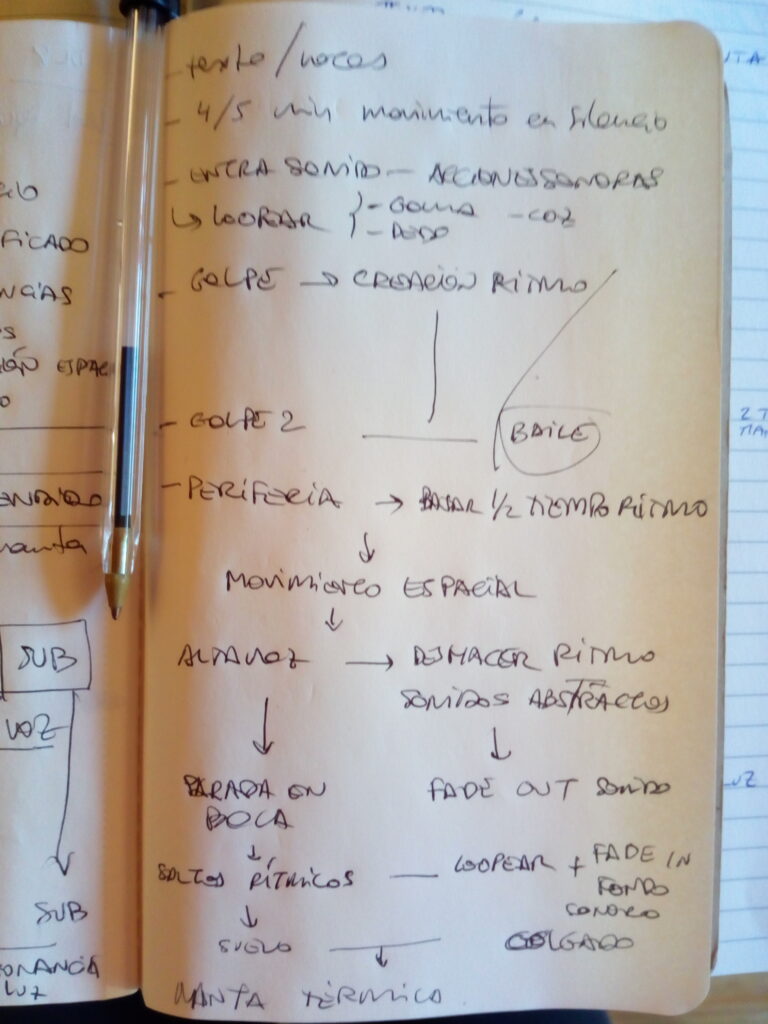 - texto/voces
- 4/5 min movimiento en silencio
- ENTRA SONIDO - ACCIONES SONORAS
↳ LOOPEAR { - GOMA - COZ
- DEDO
- GOLPE → CREACIÓN RITMO
- GOLPE 2
BAILE
- PERIFERIA → BAJAR 1/2 TIEMPO RITMO
↓
MOVIMIENTO ESPACIAL
↓
ALTAVOZ → DESHACER RITMO
SONIDOS ABSTRACTOS
↓ ↓
PARADA EN BOCA
FADE OUT SONIDO
↓
SALTOS RÍTMICOS — LOOPEAR + FADE IN
FONDO
SONORO
↓
SUELO — COLGADO
↓
MANTA TÉRMICA
FICADO
NCIAS
ESPAC
manta
SUB
VOZ
SUB
ONANCIA
LUZ